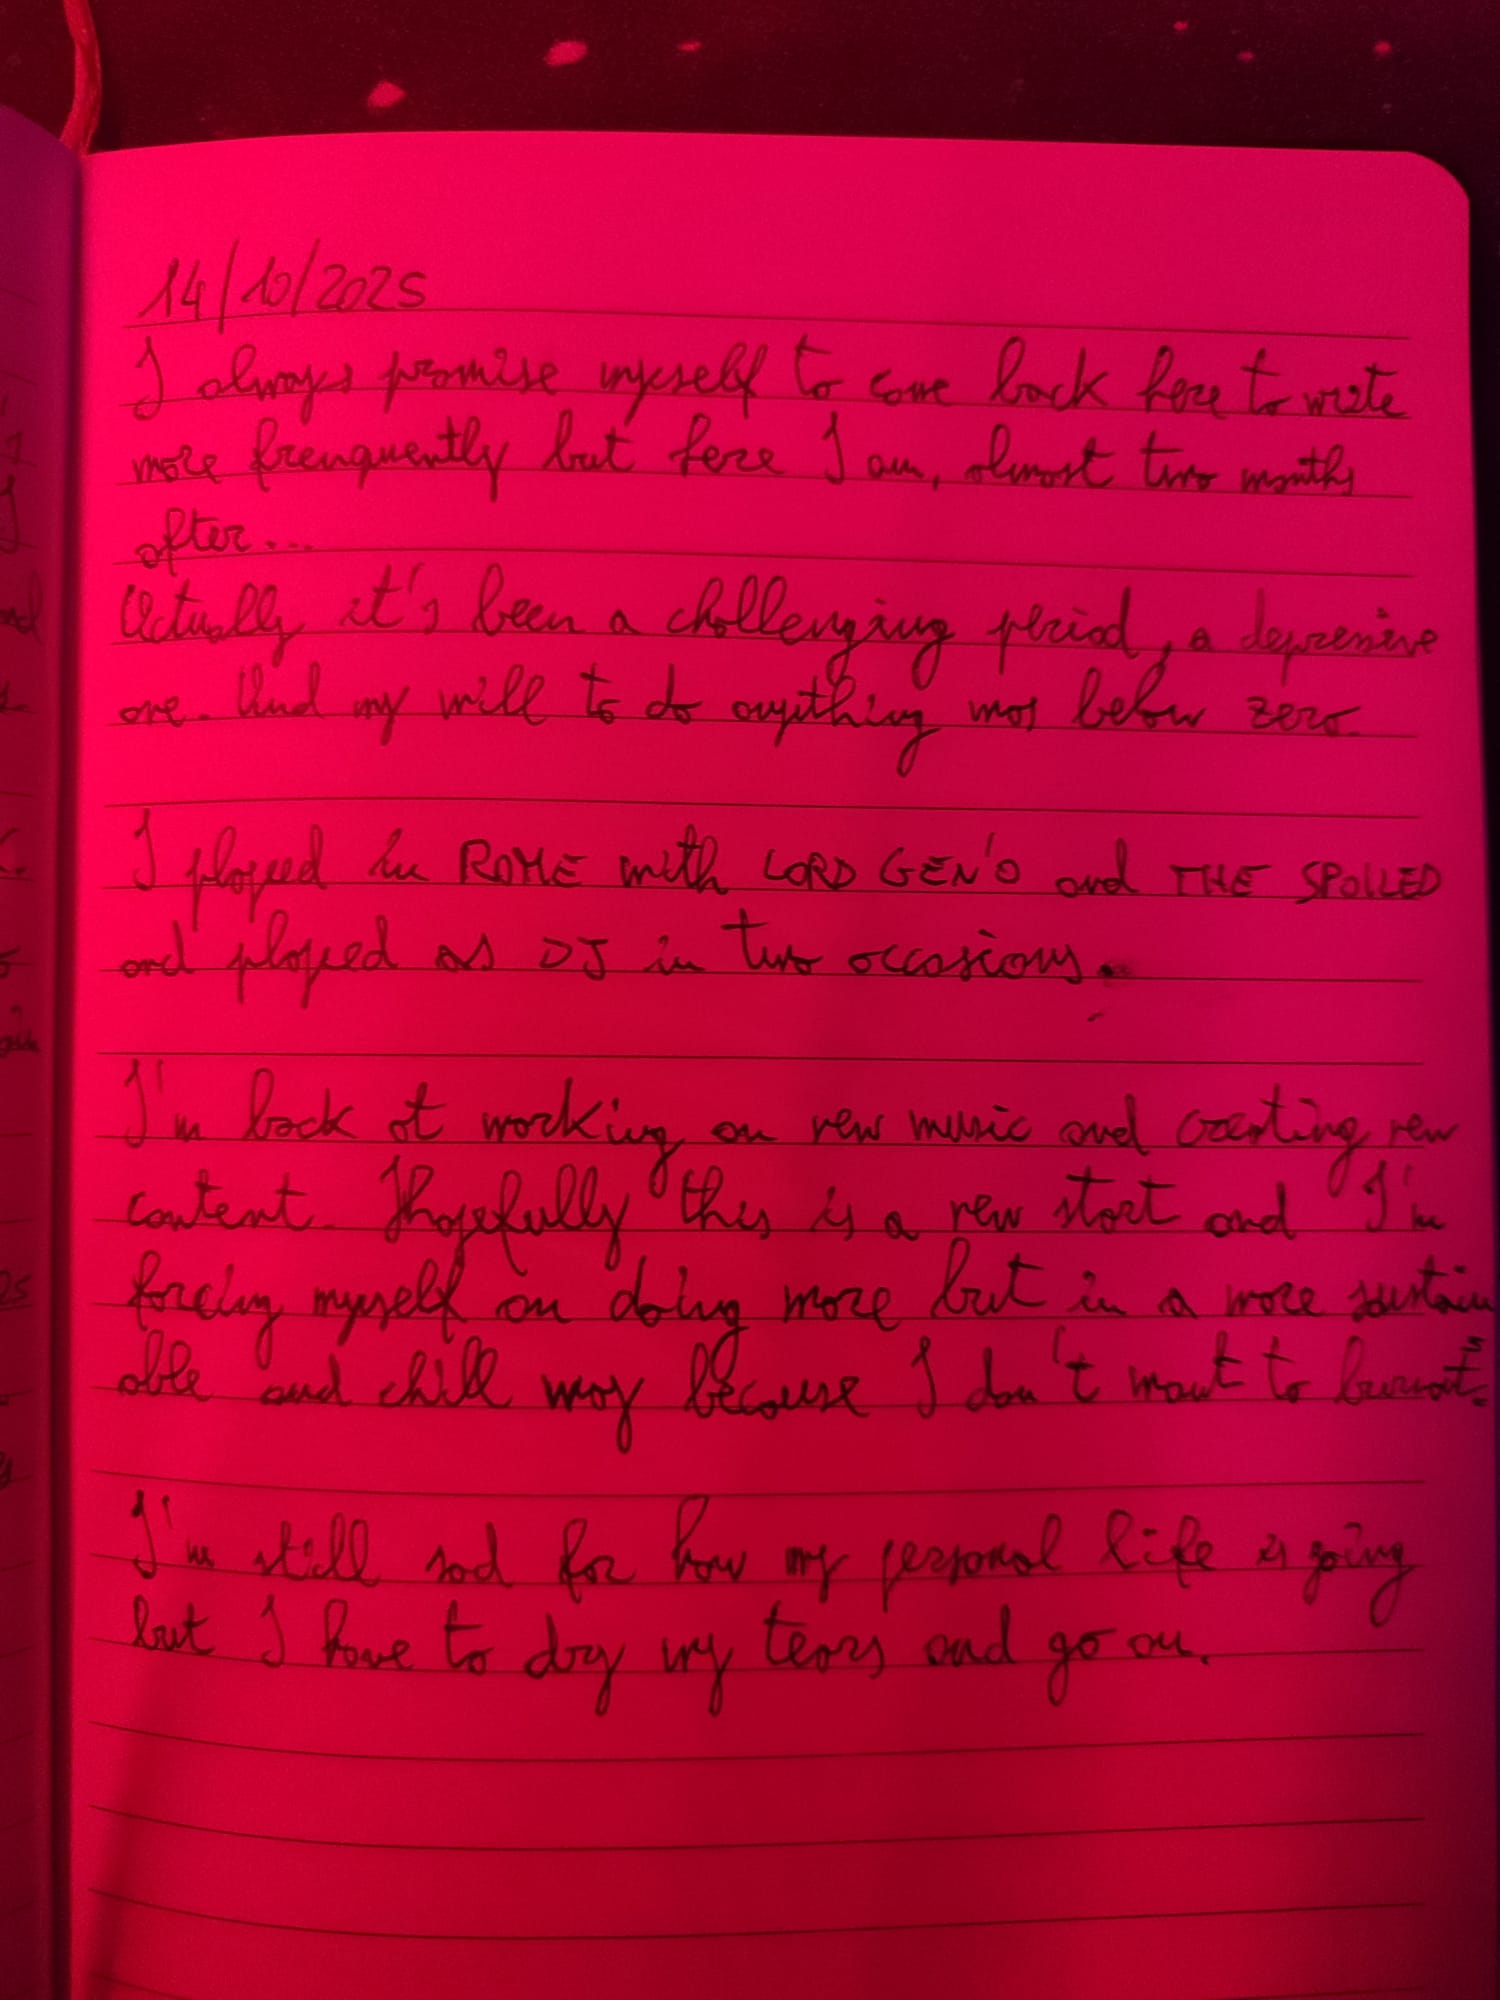 14/10/2025
I always promise myself to come back here to write
more frenquently but here I am, almost two months
after...
Actually it's been a challenging period, a depressive
one. And my will to do anything was below zero.
I played in ROME with LORD GEN'O and THE SPOILED
and played as DJ in two occasions.
I'm back at working on new music and creating new
content. Hopefully this is a new start and I'm
forcing myself on doing more but in a more sustain
able and chill way because I don't want to burnout.
I'm still sad for how my personal life is going
but I have to dry my tears and go on.